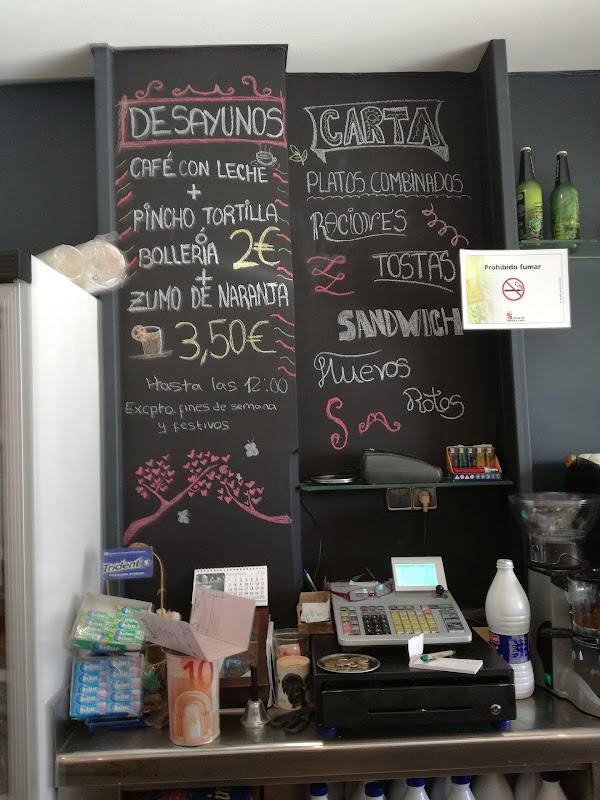 DESAYUNOS
CAFÉ CON LECHE
+
PINCHO TORTILLA
ó
BOLLERIA 2€
+
ZUMO DE NARANJA
3,50€
Hasta las 12:00
Excpto. fines de semana
y festivos
CARTA
PLATOS COMBINADOS
Raciones
TOSTAS
SANDWICH
Huevos
Rotos
Prohibido fumar
Trident
10